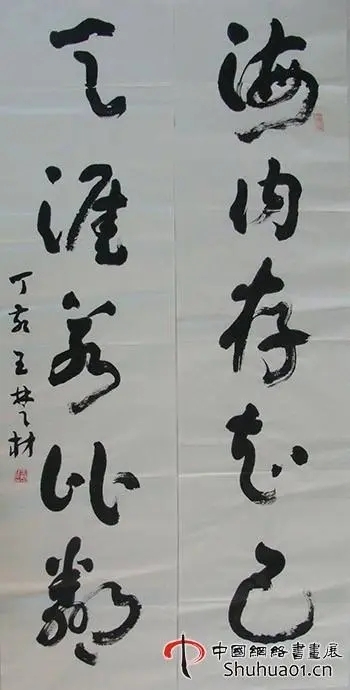 海内存知己
天涯若比鄰
丁亥 王楚材
中國網絡書畫展
Shuhua01.cn